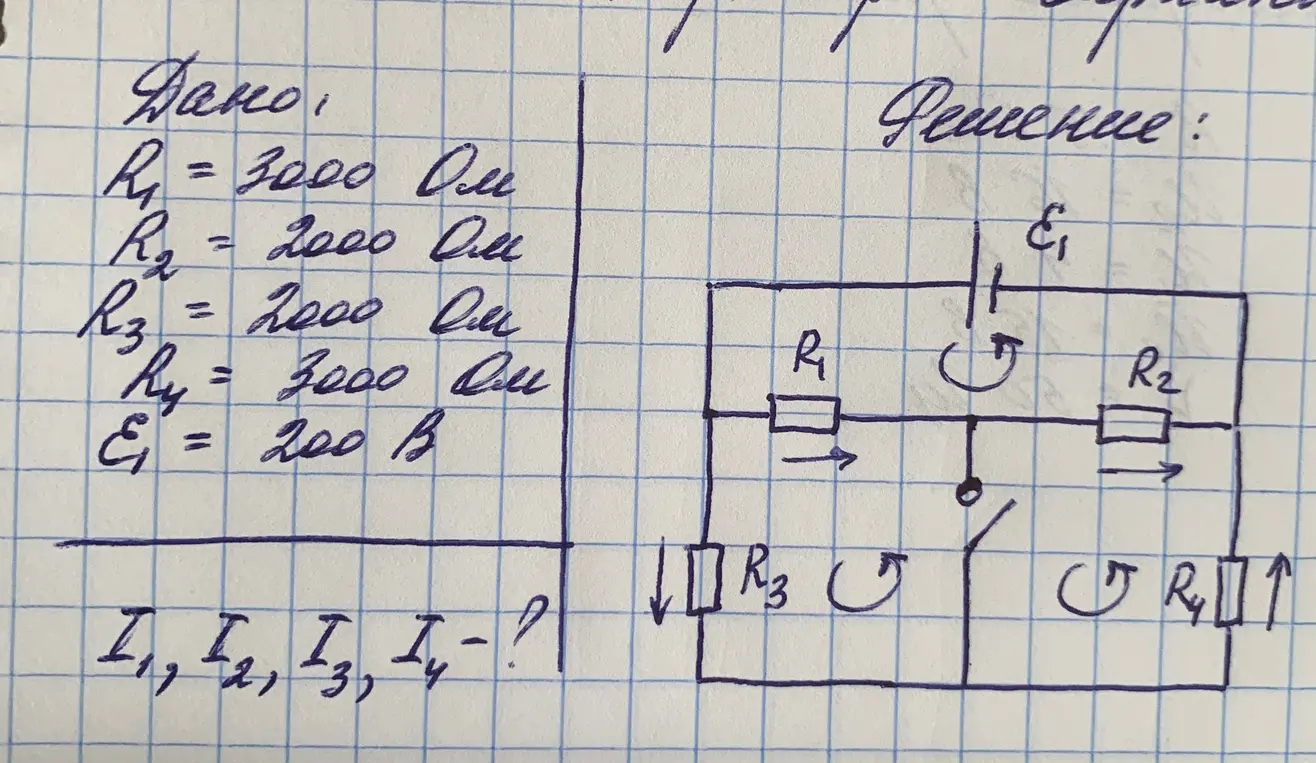 Дано:
R₁ = 3000 Ом
R₂ = 2000 Ом
R₃ = 2000 Ом
R₄ = 3000 Ом
Ɛ₁ = 200 В
I₁, I₂, I₃, I₄ - ?
Решение:
Ɛ₁
R₁
R₂
R₃
R₄